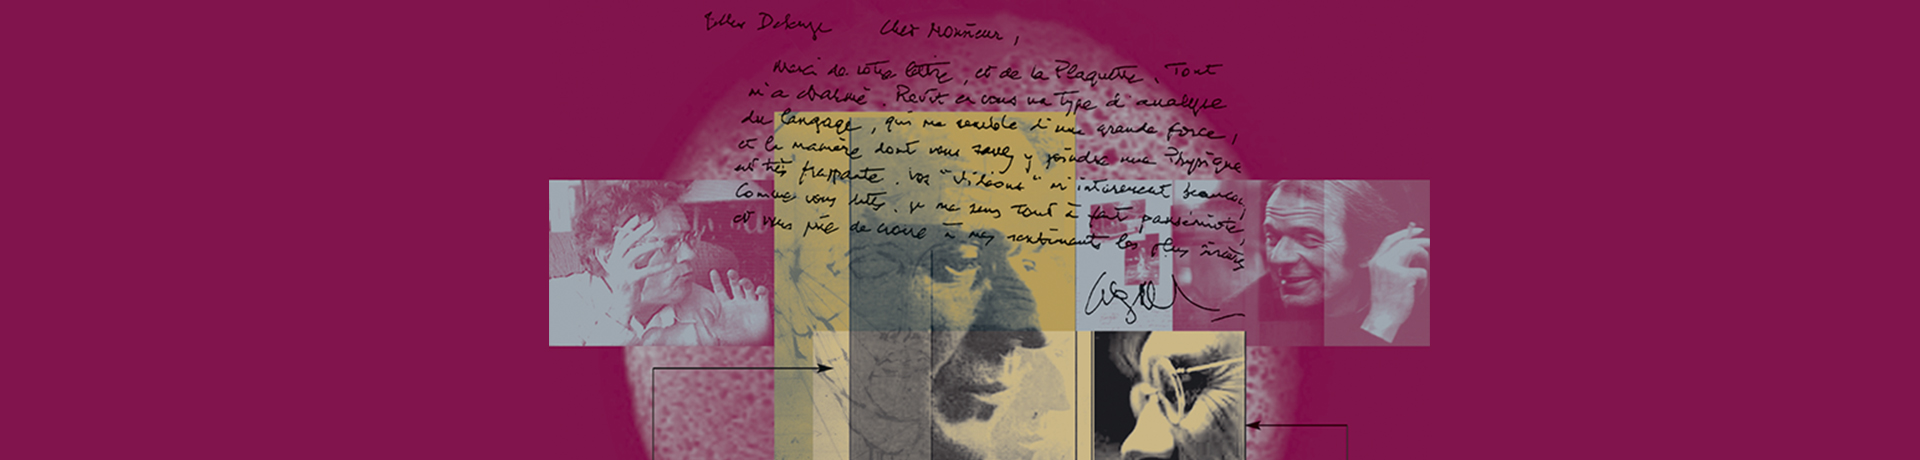 Gilles Deleuze Cher Monsieur,
Merci de votre lettre, et de la Plaquette. Tout
m'a charmé. Revit en vous un type d'analyse
du langage, qui me semble d'une grande force,
et la manière dont vous savez y joindre une Physique
est très frappante. Vos "visions" m'intéressent beaucoup,
Comme vous dites, je me sens tout à fait passionné,
et vous prie de croire à mes sentiments les plus sincères